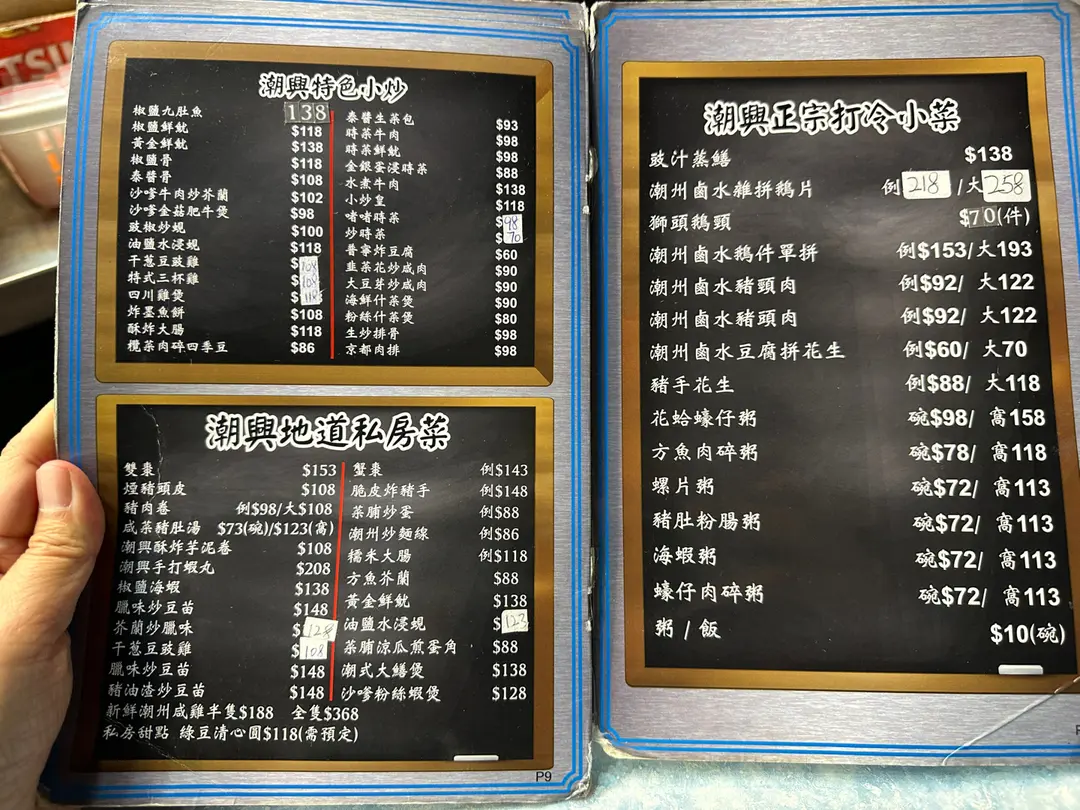 TSU
潮興特色小炒
椒鹽九肚魚 138
椒鹽鮮魷 $118
黃金鮮魷 $138
椒鹽骨 $118
泰醬骨 $108
沙嗲牛肉炒芥蘭 $102
沙嗲金菇肥牛煲 $98
豉椒炒蜆 $100
油鹽水浸蜆 $118
干葱豆豉雞 $108
特式三杯雞 $108
四川雞煲 $118
炸墨魚餅 $108
酥炸大腸 $118
欖菜肉碎四季豆 $86
泰醬生菜包 $93
時菜牛肉 $98
時菜鮮魷 $98
金銀蛋浸時菜 $88
水煮牛肉 $138
小炒皇 $118
啫啫時菜 $98
炒時菜 $70
普寧炸豆腐 $60
韭菜花炒咸肉 $90
大豆芽炒咸肉 $90
海鮮什菜煲 $90
粉絲什菜煲 $80
生炒排骨 $98
京都肉排 $98
潮興地道私房菜
雙棗 $153
煙豬頭皮 $108
豬肉卷 例$98/大$108
咸菜豬肚湯 $73(碗)/$123(窩)
潮興酥炸芋泥卷 $108
潮興手打蝦丸 $208
椒鹽海蝦 $138
臘味炒豆苗 $148
芥蘭炒臘味 $128
干葱豆豉雞 $108
臘味炒豆苗 $148
豬油渣炒豆苗 $148
新鮮潮州咸雞半隻$188 全隻$368
私房甜點 綠豆清心圓$118(需預定)
蟹棗 例$143
脆皮炸豬手 例$148
菜脯炒蛋 例$88
潮州炒麵線 例$86
糯米大腸 例$118
方魚芥蘭 $88
黃金鮮魷 $138
油鹽水浸蜆 $123
菜脯涼瓜煎蛋角 $88
潮式大鱔煲 $138
沙嗲粉絲蝦煲 $128
P9
潮興正宗打冷小菜
豉汁蒸鱔 $138
潮州鹵水雜拼鵝片 例218/大258
獅頭鵝頸 $70(件)
潮州鹵水鵝件單拼 例$153/大193
潮州鹵水豬頸肉 例$92/ 大122
潮州鹵水豬頭肉 例$92/ 大122
潮州鹵水豆腐拼花生 例$60/ 大70
豬手花生 例$88/ 大118
花蛤蠔仔粥 碗$98/ 窩158
方魚肉碎粥 碗$78/ 窩118
螺片粥 碗$72/ 窩113
豬肚粉腸粥 碗$72/ 窩113
海蝦粥 碗$72/ 窩113
蠔仔肉碎粥 碗$72/ 窩113
粥 / 飯 $10(碗)